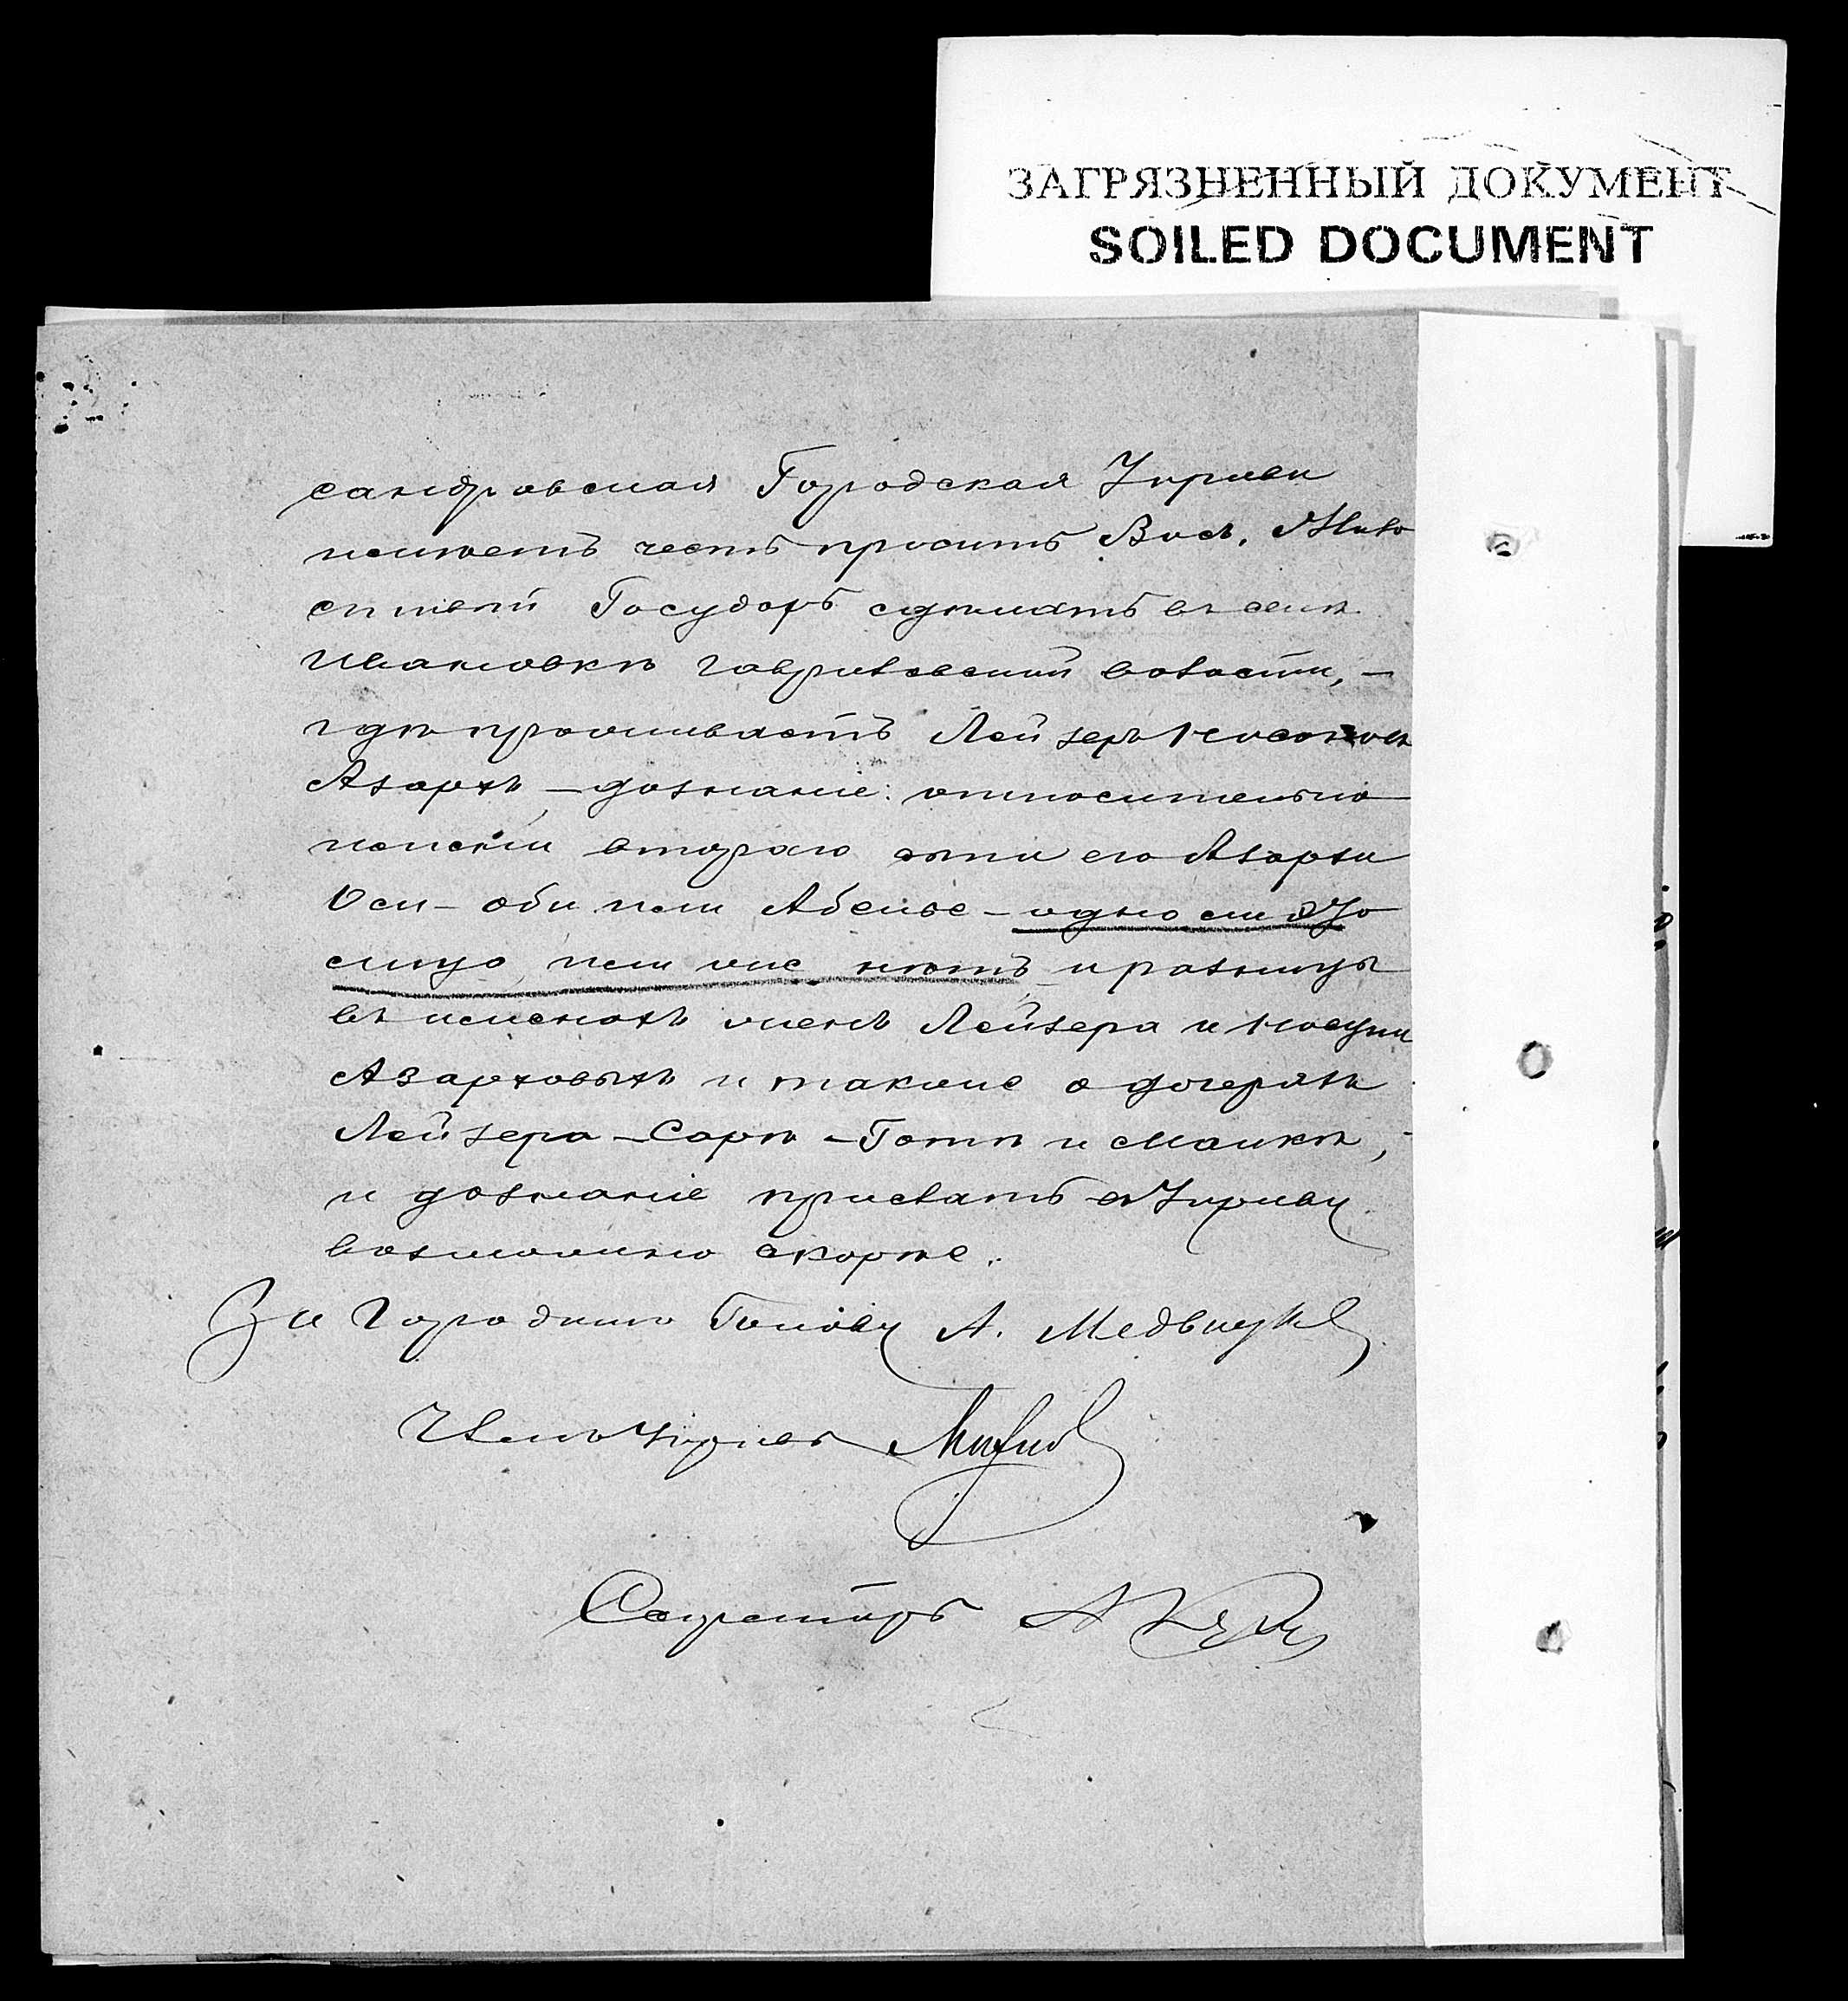 ЗАГРЯЗНЕННЫЙ ДОКУМЕНТ
SOILED DOCUMENT
сандровская Городская Управа
имѣетъ честь просить Васъ, Мило
стивый Государь сдѣлать въ селѣ
Ивановкѣ Гавриловской волости, —
гдѣ проживаетъ Лейзеръ
Азархъ — дознаніе: относительно
женскіи втораго сына его Азарха
Оси — оби или Абеибе — одно ли это
лицо, или же нѣтъ и разницы
въ именахъ женъ Лейзера и
Азарховыхъ и также о дочеряхъ
Лейзера — Сарѣ — Готѣ и Малкѣ,
и дознаніе прислать въ Управу
возможно скорѣе.
За Городскаго Голову А.
Членъ Управы
Секретарь А